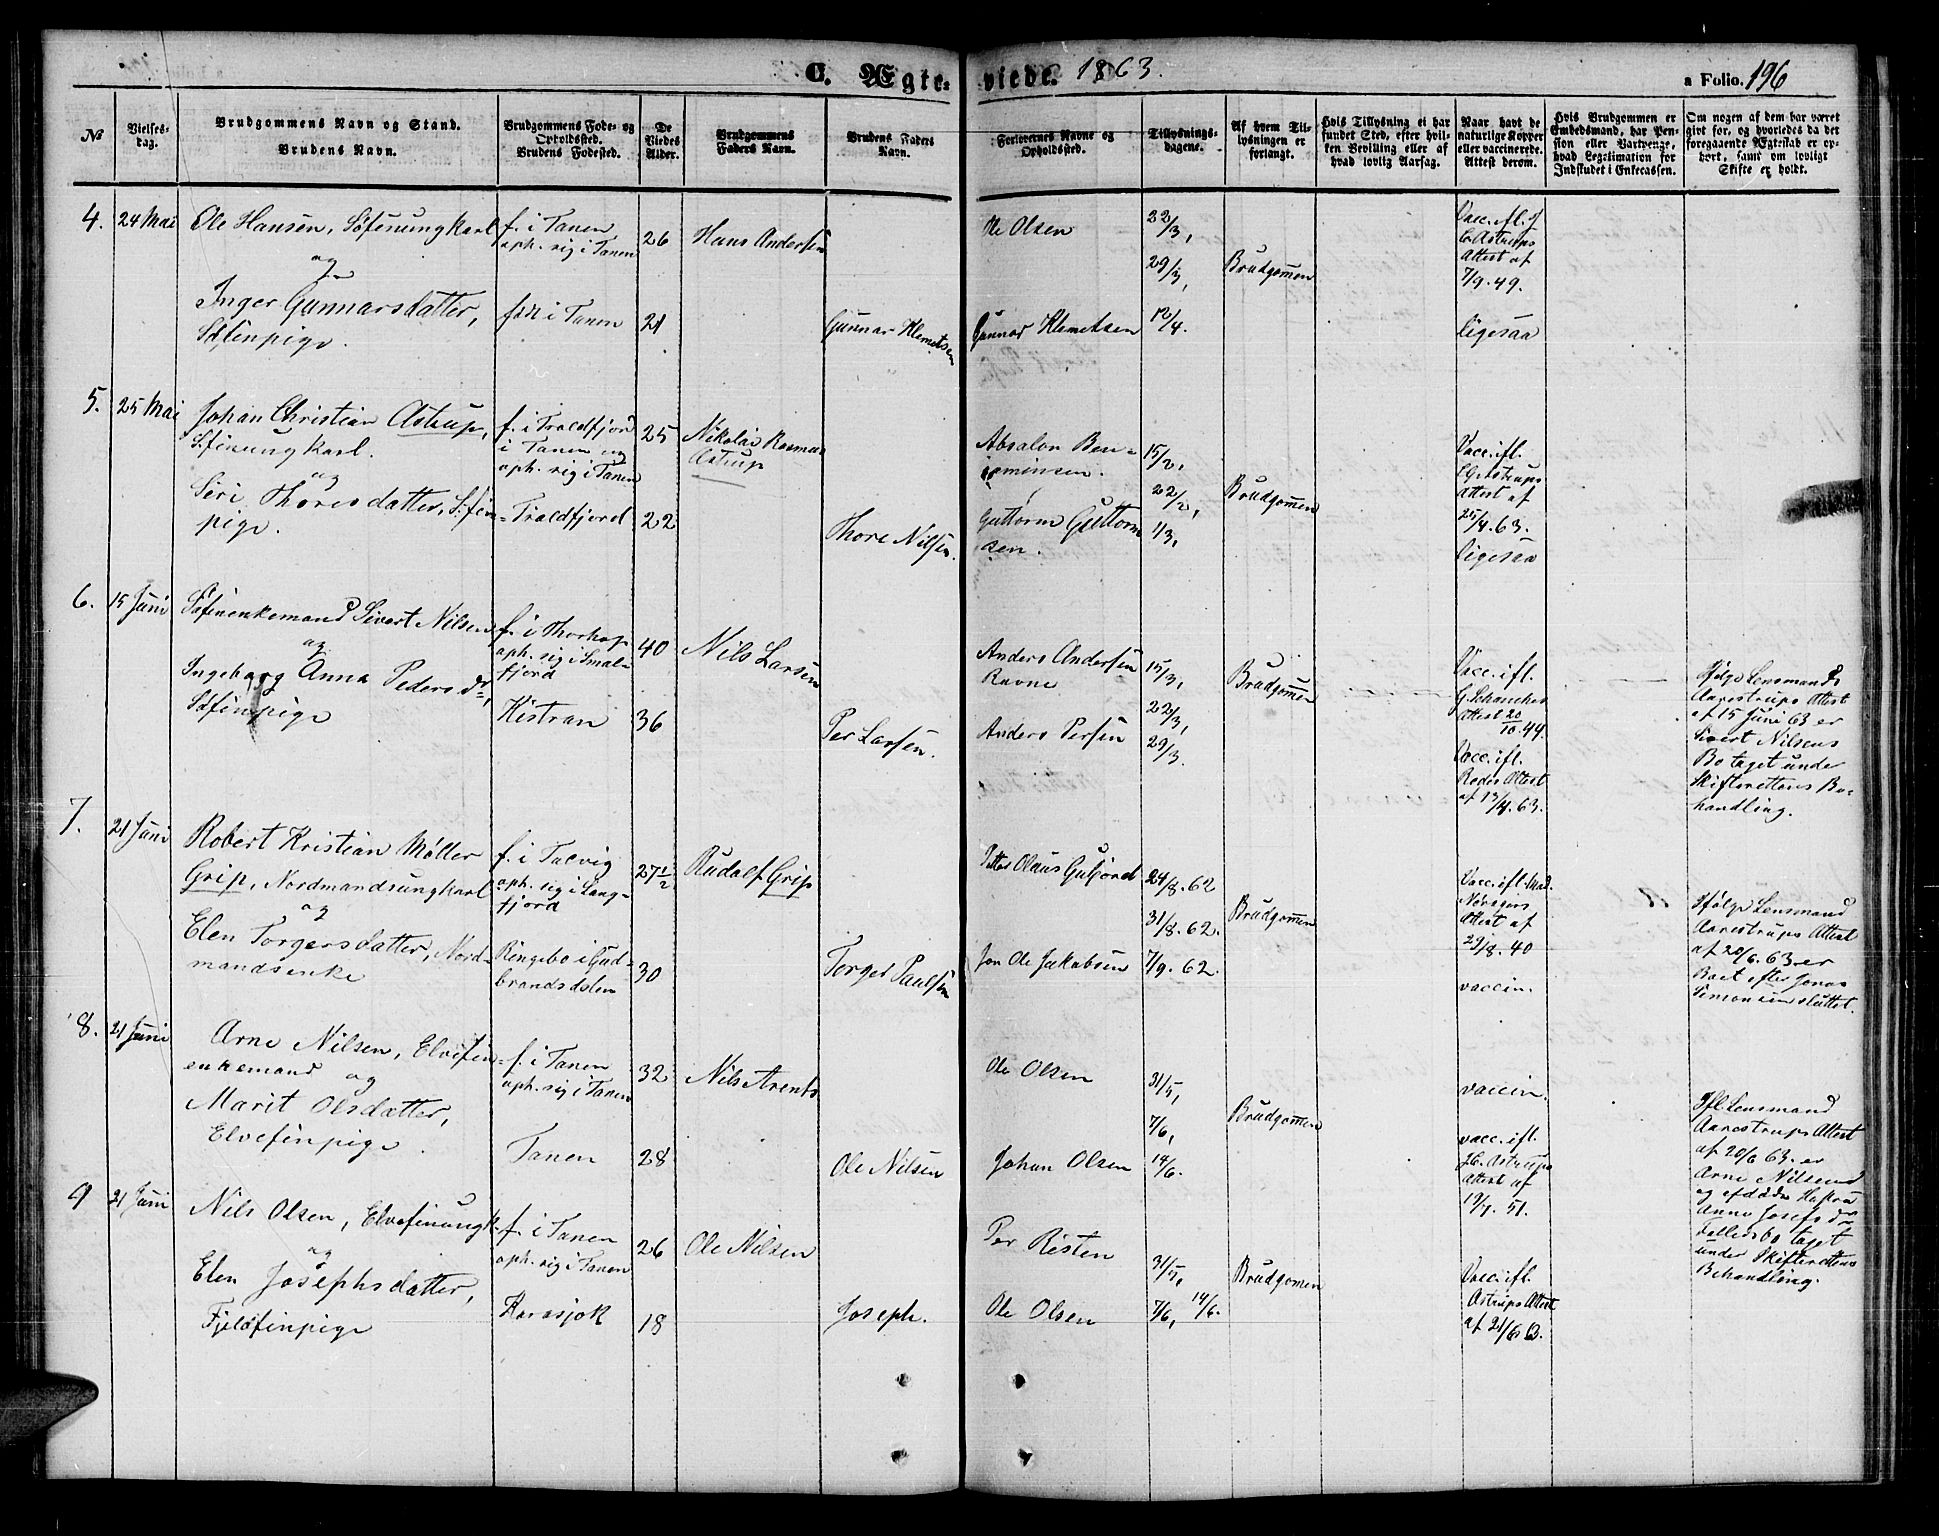 C. Ægte- viede. 1863.
a Folio. 196
No
Vielses-
dag.
Brudgommens Navn og Stand.
Brudens Navn.
Brudgommens Føde- og
Opholdssted.
Brudens Fødested.
De
Viedes
Alder.
Brudgommens
Faders Navn.
Brudens Faders
Navn.
Forlovernes Navne og
Opholdssted.
Tillysnings-
dagene.
Af hvem Til-
lysningen er
forlangt.
Hvis Tillysning ei har
fundet Sted, efter hvil-
ken Bevilling eller af
hvad lovlig Aarsag.
Naar havt de
naturlige Kopper
eller vaccinerede.
Attest derom.
Hvis Brudgommen er
Embedsmand, har Pen-
sion eller Vartpenge,
hvad Legitimation for
Indskudet i Enkecassen.
Om nogen af dem har været
givt før, og hvorledes da det
foregaaende Ægteskab er op-
hørt, samt om lovligt
Skifte er holdt.
4. 24 Mai
Ole Hansen, Søfinungkarl
og
Inger Gunnarsdatter,
Søfinpige.
f. i Tanen
oph. sig i Tanen
født i Tanen
26
21
Hans Andersen
Gunnar Klemetsen
Ole Olsen
Gunnar Klemetsen
22/3,
29/3,
12/4.
Brudgommen
Vacc. ifl.
C. Astrups
Attest af
7/9. 49.
ligesaa
5. 25 Mai
Johan Christian Astrup,
Søfinungkarl.
og
Siri Thoresdatter, Søfin-
pige.
f. i Traldfjord
i Tanen og
oph. sig i Tanen
Traldfjord
25
22
Nikolai Rasmus
Astrup
Thore Nilsen.
Absalon Ben-
jeminsen.
Guttorm Guttorm
sen.
15/2,
22/2,
1/3,
Brudgommen
Vacc. ifl.
C. Astrups
Attest af
25/4. 63.
ligesaa
6. 15 Juni
Søfinenkemand Sivert Nilsen
og
Ingeborg Anna Pedersdr,
Søfinpige
f. i Thorhop
oph. sig i Smal-
fjord
Kistran
40
36
Nils Larsen
Per Larsen.
Anders Andersen
Ravne
Anders Persen
15/3,
22/3,
29/3.
Brudgommen
Vacc. ifl.
G. Schanches
Attest 20/10. 44.
Vacc. ifl.
Rodes Attest
af 13/4. 63.
Ifølge Lensmand
Aarestrups Attest
af 15 Juni 63 er
Sivert Nilsens
Bo taget under
Skifterettens Be-
handling.
7. 21 Juni
Robert Kristian Møller
Grip, Nordmandsungkarl
og
Elen Torgersdatter, Nord-
mandsenke
f. i Talvig
oph. sig i Lang-
fjord
Ringebo i Gud-
brandsdalen
27 1/2
30
Rudolf Grip
Torger Paulsen
Petter Olaus Gufjord
Jon Ole Jakobsen
24/8. 62
31/8. 62.
7/9. 62.
Brudgommen
Vacc. ifl. Mad.
Noragers
Attest af
29/8. 40
vaccin.
Ifølge Lensmand
Aarestrups Attest
af 20/6. 63 er
Boet efter Jonas
Simonsen sluttet.
8. 21 Juni
Arne Nilsen, Elvefin
enkemand og
Marit Olsdatter,
Elvefinpige.
f. i Tanen
oph. sig i Tanen
Tanen
32
28
Nils Arents
Ole Nilsen
Ole Olsen
Johan Olsen
31/5,
7/6,
14/6.
Brudgommen
vaccin.
vacc. ifl.
C. Astrups
Attest af
19/7. 51.
Ifl. Lensmand
Aarestrups Attest
af 20/6 63 er
Arne Nilsens
og afdøde Hustru
Anne Josefsdr
Fælledsbo taget
under Skifterettens
Behandling.
9 21 Juni
Nils Olsen, Elvefinungk.
og
Elen Josephsdatter,
Fjeldfinpige
f. i Tanen
oph. sig i Tanen
Karasjok
26
18
Ole Nilsen
Joseph.
Per Risten
Ole Olsen
31/5,
7/6, 14/6.
Brudgomen
Vacc. ifl.
Astrups Attest
af 21/6 63.